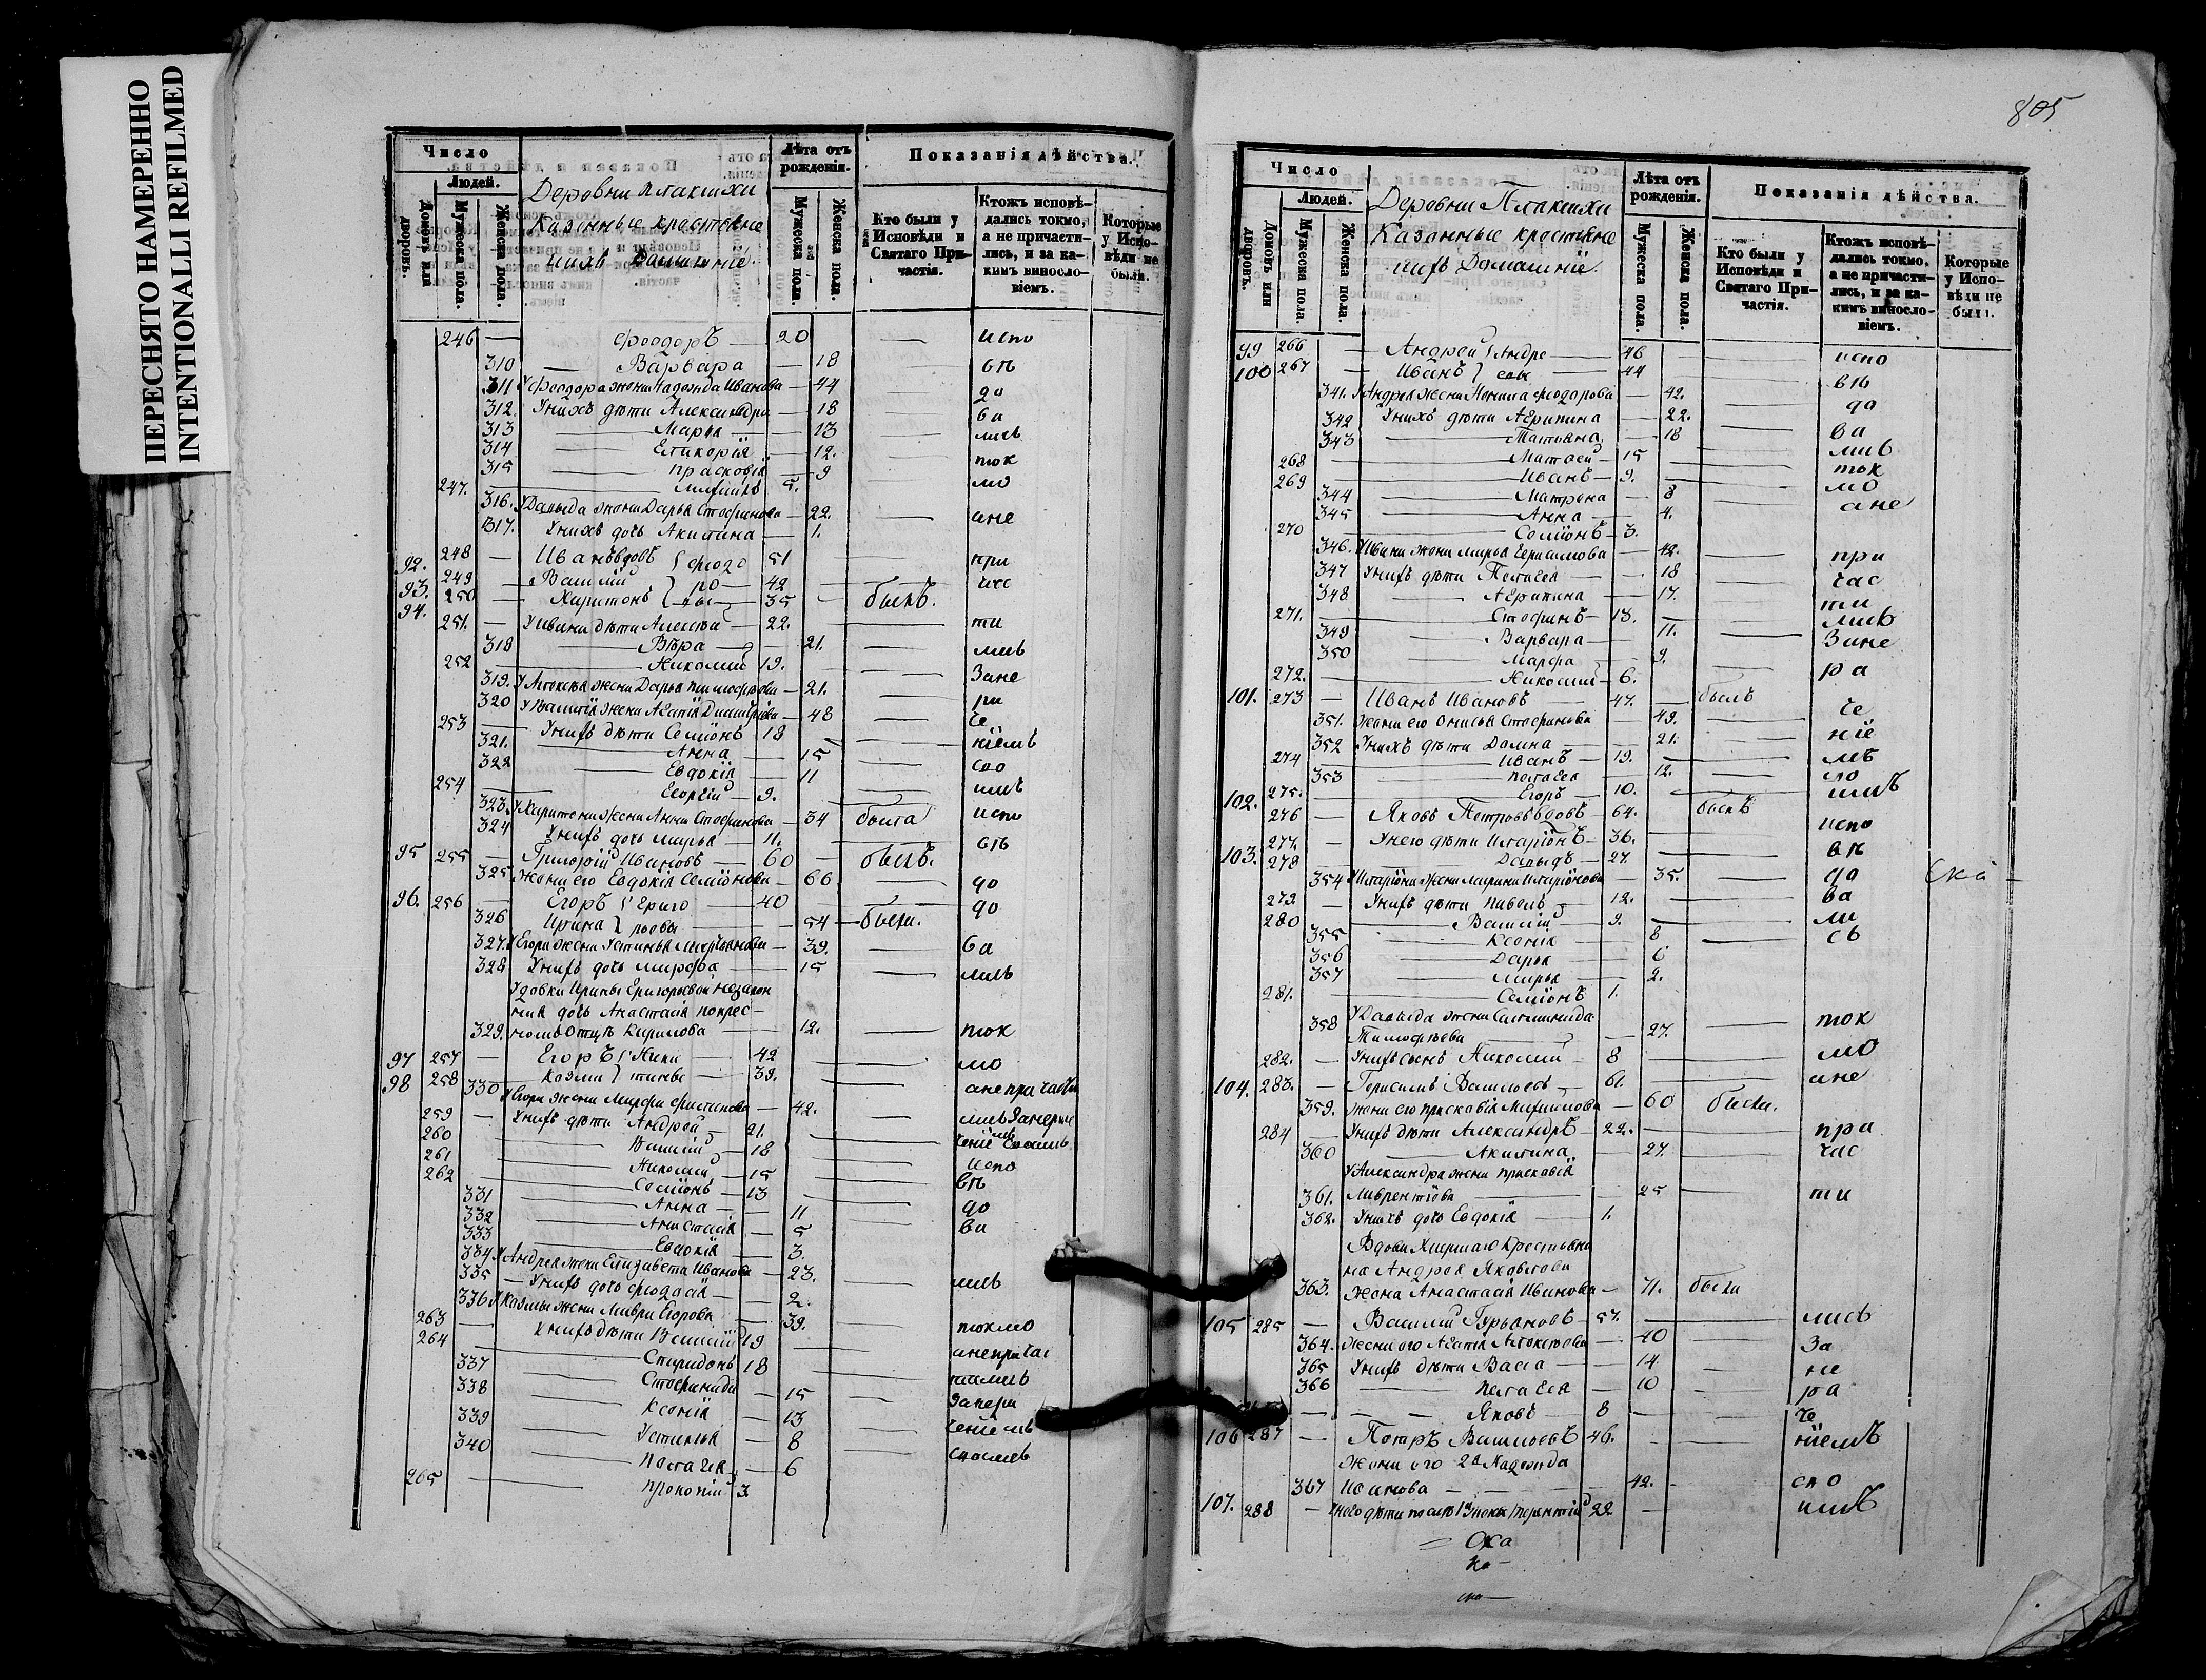 ПЕРЕСНЯТО НАМЕРЕННО
INTENTIONALLI REFILMED
Число
Людей.
Домовъ или дворовъ.
Мужеска пола.
Женска пола.
Деревни Плакихи
Казенные крестьяне
и ихъ Домашніе.
Лѣта отъ рожденія.
Мужеска пола.
Женска пола.
Показанія дѣйства.
Кто были у Исповѣди и Святаго При-частія.
Ктожъ исповѣ-дались токмо, а не причасти-лись, и за ка-кимъ винносло-віемъ.
Которые у Испо-вѣди не были.
246 — Феодоръ — 20 — испо
310 — Варвара — 18 — вѣ
311 У Феодора жена Надежда Иванова — 44 — до
312. У нихъ дѣти Александра — 18 — ва
313 — Марья — 13 — лись
314 — Гликерія — 12. — ток
315 — Прасковія — 9
247. — Михаилъ 5. — мо
316. У Давыда жена Дарья Стефанова — 22. — ане
317. У нихъ дочь Акилина — 1.
92. 248 — Иванъ вдовъ 51 — при
93. 249 — Василій } Феодо 42 — час
94. 250 — Харитонъ } ровы 35 — былъ.
251. — У Ивана дѣти Алексѣй — 22. — ти
318 — Вѣра — 21. — лись
252 — Николай 19. — Зане
319. У Алексѣя жена Дарья Тимофѣева — 21. — ра
320 У Василія жена Агапія Димитріева — 48 — че
253 — У нихъ дѣти Семіонъ 18 — ніемъ
321. — Анна — 15 — сло
322 — Евдокія — 11 — имъ
254 — Георгій — 9.
323. У Харитона жена Анна Стефанова — 34 была испо
324 У нихъ дочь Марья — 11. — вѣ
95 255 — Григорій Ивановъ — 60 — былъ.
325 Жена его Евдокія Семіонова — 66 — до
96. 256 — Егоръ } Григо — 40 — до
326 Ирина } рьевы — 54 — были.
327. У Егора жена Устинья Мартьянова — 39. — ва
328 У нихъ дочь Марфа — 15 — лись
У дѣвки Ирины Григорьевой незакон
ная дочь Анастасія по крес-
329. номъ Отцѣ Кирилова — 12. — ток
97 257 — Егоръ } Ники — 42 — мо
98 258 — Козма } тины — 39. — ане при части
330 У Егора жена Марфа Фистинова — 42. — лись Занерач
259 — У нихъ дѣти Андрей — 21.
260 — Василій — 18 — испо
261 — Николай — 15 — вѣ
262 — Семіонъ — 13
331 — Анна — 11 — до
332 — Анастасія — 5 — ва
333 — Евдокія — 3.
334 У Андрея жена Елизавета Иванова — 23. — лись
335 — У нихъ дочь Феодосія — 2.
336 У Козмы жена Мавра Егорова — 39. — токмо
263 — У нихъ дѣти Василій 19 — ане при час
264 — Спиридонъ 18 — тились
337 — Стефанида — 15 — Занера
338 — Ксенія — 13 — ченіемъ
339 — Устинья — 8 — сло имъ
340 — Пелагея — 6
265 — Прокопій 3.
805
Число
Людей.
Домовъ или дворовъ.
Мужеска пола.
Женска пола.
Деревни Плакихи
Казенные крестьяне
и ихъ Домашніе.
Лѣта отъ рожденія.
Мужеска пола.
Женска пола.
Показанія дѣйства.
Кто были у Исповѣди и Святаго При-частія.
Ктожъ исповѣ-дались токмо, а не причасти-лись, и за ка-кимъ винносло-віемъ.
Которые у Испо-вѣди не были.
99 266 — Андрей } Андре — 46 — испо
100 267 — Иванъ } евы — 44 — вѣ
341. У Андрея жена Ненила Феодорова — 42. — до
342 У нихъ дѣти Агрипина — 22. — ва
343 — Татьяна — 18 — лись
268 — Матвей — 15 — ток
269 — Иванъ — 9. — мо
344 — Матрена — 8 — ане
345 — Анна — 4.
270 — Семіонъ — 3.
346. У Ивана жена Марья Ермилова — 42. — при
347 У нихъ дѣти Пелагея — 18 — час
348 — Агрипина — 17. — ти
271. — Стефанъ — 13. — лись
349 — Варвара — 11. — Зане
350 — Марфа — 9.
272. — Николай — 6. — ра
101. 273 — Иванъ Ивановъ — 47. — былъ
351. Жена его Онисья Стефанова — 49. — че
352 У нихъ дѣти Домна — 21. — ніе
274 — Иванъ — 19. — мъ
353 — Пелагея — 12. — ло
275. — Егоръ — 10. — имъ
102. 276 — Яковъ Петровъ вдовъ — 64. — былъ
277. — У него дѣти Иларіонъ — 36. — испо
103. 278 — Давыдъ — 27. — вѣ
354 У Иларіона жена Марина Иларіонова — 35. — до
279. — У нихъ дѣти Павелъ — 12. — ва
280 — Василій — 9. — ли
355 — Ксенія — 8 — сь
356 — Дарья — 6
357 — Марья — 2.
281. — Семіонъ 1.
У Давыда жена Саломонида
358 Тимофѣева — 27. — ток
282. — У нихъ сынъ Николай — 8 — мо
104. 283. — Герасимъ Васильевъ — 61. — ане
359. Жена его Прасковія Михаилова — 60 были.
284 — У нихъ дѣти Александръ — 22. — при
360 — Акилина — 27. — час
У Александра жена Прасковія
361. Лаврентіева — 25 — ти
362. У нихъ дочь Евдокія — 1.
Вдова Умершаго Крестьяни
на Андрея Яковлева
363. Жена Анастасія Иванова — 71. была
105 285 — Василій Гурьяновъ — 57. — лись
364. Жена его Агапія Алексѣева — 40 — За
365 У нихъ дѣти Васса — 14. — не
366 — Пелагея — 10 — ра
— Яковъ 8 — че
106 287 — Петръ Васильевъ 46. — ніемъ
Жена его 2я Надежда
367 Иванова — 42. — сло
107. 288 — У него дѣти послѣ 1й жены Терентій 22 — имъ
Ска